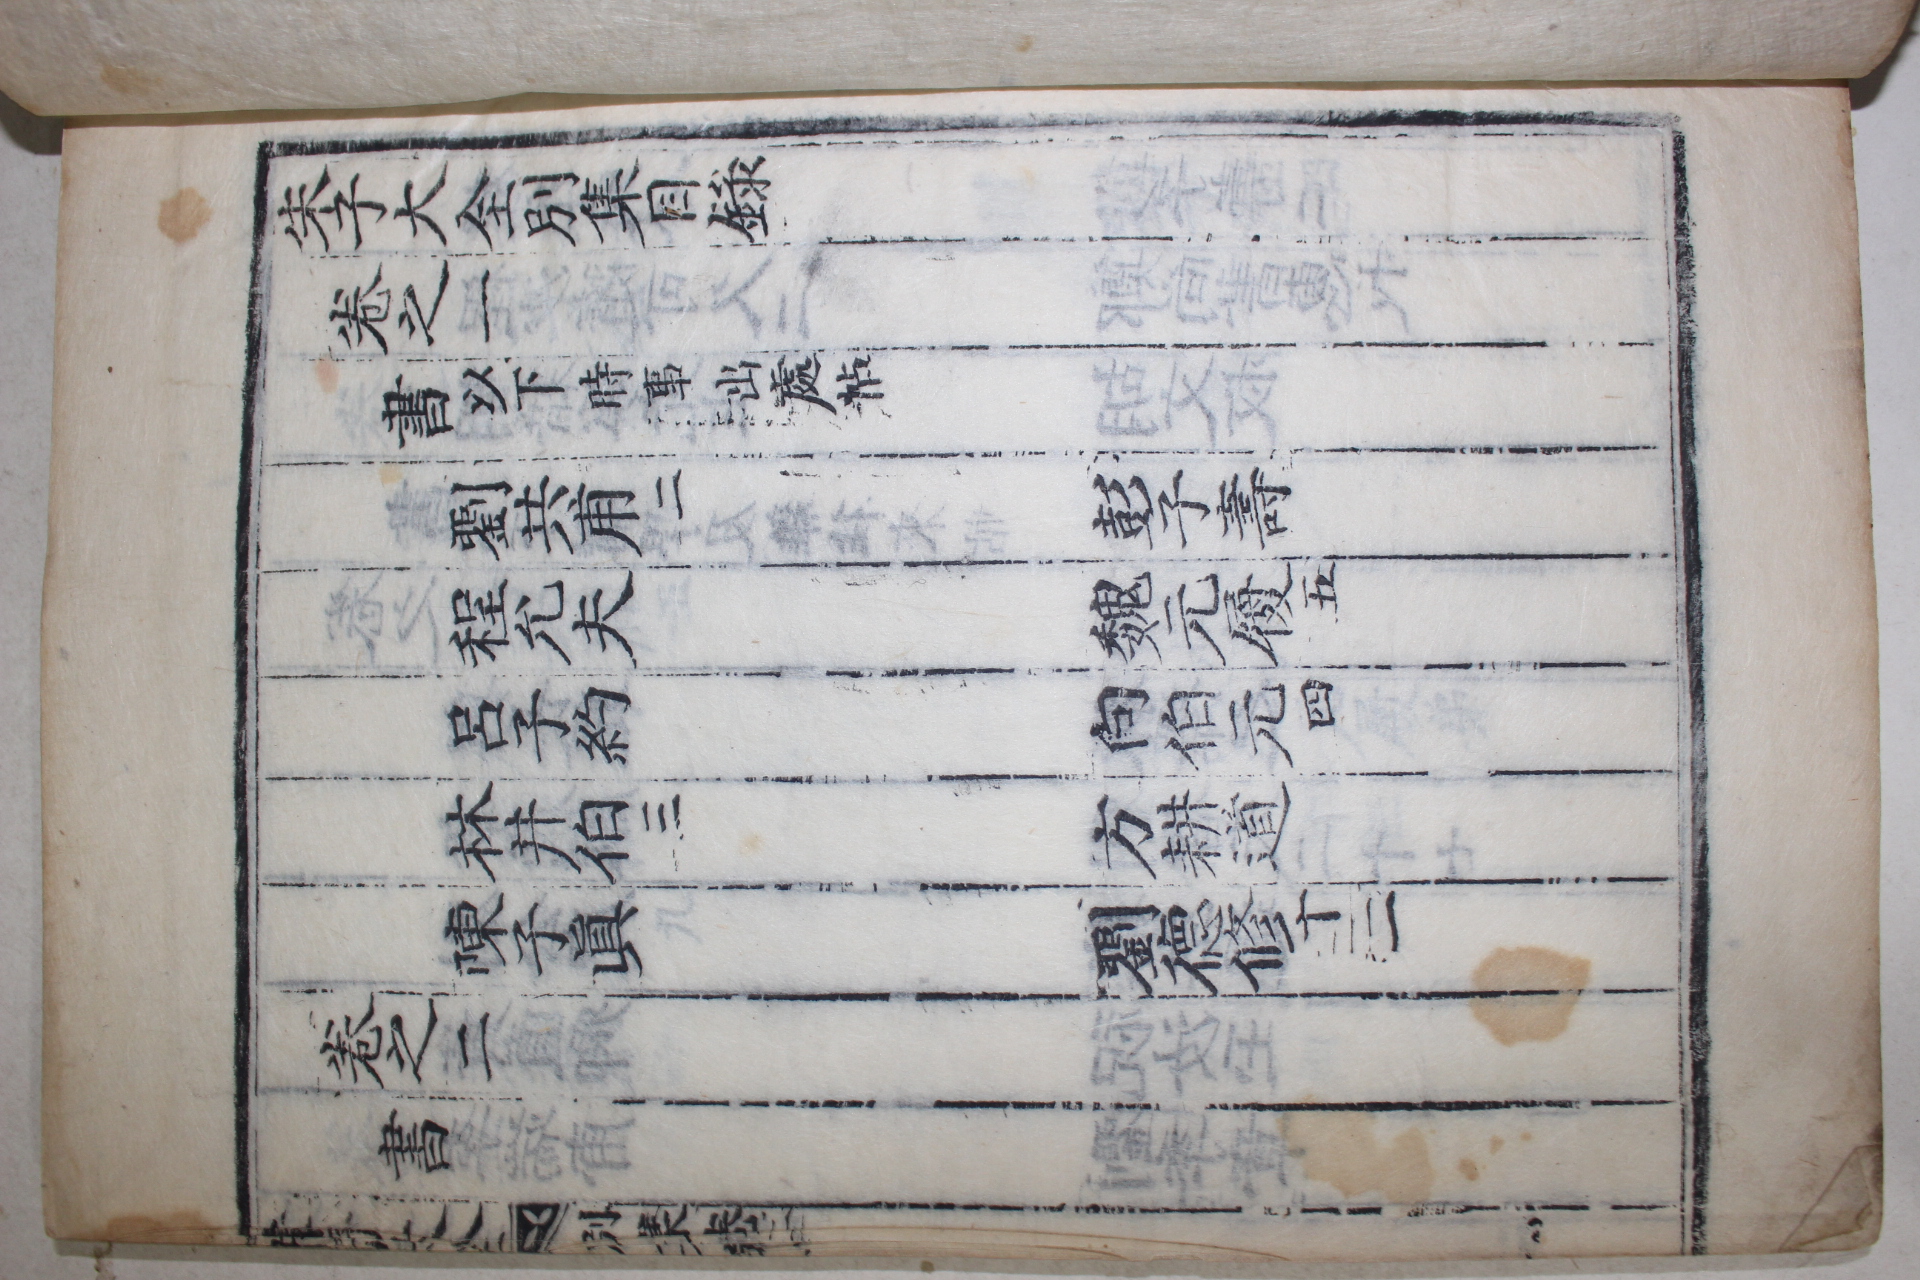 朱子大全別集目錄
卷之一
書以下時事出處帖
劉共甫二
彭子壽
程允夫
魏元履五
呂子約
向伯元四
林井伯三
方耕道
陳子眞
劉德修十二
卷之二
書